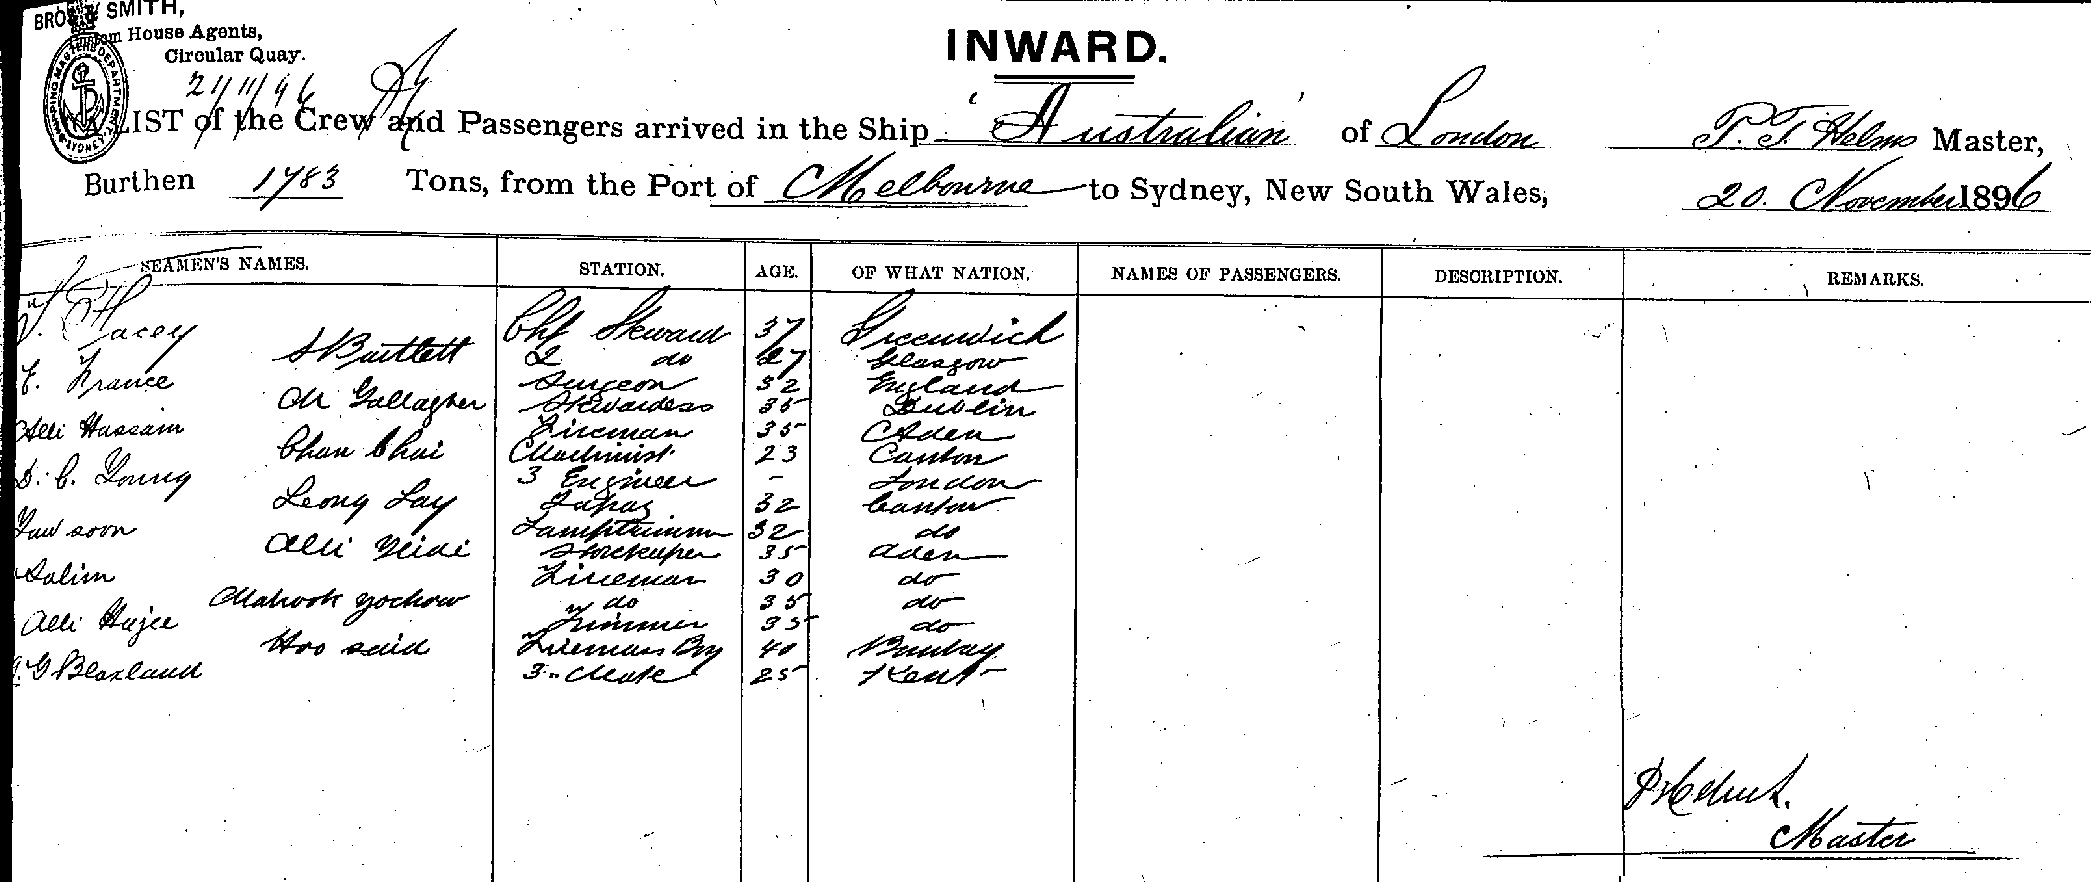 BROS. & SMITH,
Custom House Agents,
Circular Quay.
21/11/96
SHIPPING MASTERS DEPARTMENT SYDNEY
INWARD.
A LIST of the Crew and Passengers arrived in the Ship "Australian" of London P. T. Helms Master,
Burthen 1783 Tons, from the Port of Melbourne to Sydney, New South Wales, 20. November 1896
SEAMEN'S NAMES. STATION. AGE. OF WHAT NATION. NAMES OF PASSENGERS. DESCRIPTION. REMARKS.
Hacey Chf Steward 37 Greenwich
S Bartlett 2 do 27 Glasgow
E. France Surgeon 32 England
M Gallagher Stewardess 35 Dublin
Alli Hassain Fireman 35 Aden
Chan Chai Machinist 23 Canton
D. C. Young 3 Engineer - London
Leong Lay 32 Canton
Yaw soon Lamptrimmer 32 do
Alli Storekeeper 35 Aden
Salim Fireman 30 do
yochow do 35 do
Alli Hajee Trimmer 35 do
Hoo said Firemans Boy 40 Bombay
G Blaxland 3" Mate 25 Kent
P Helms.
Master